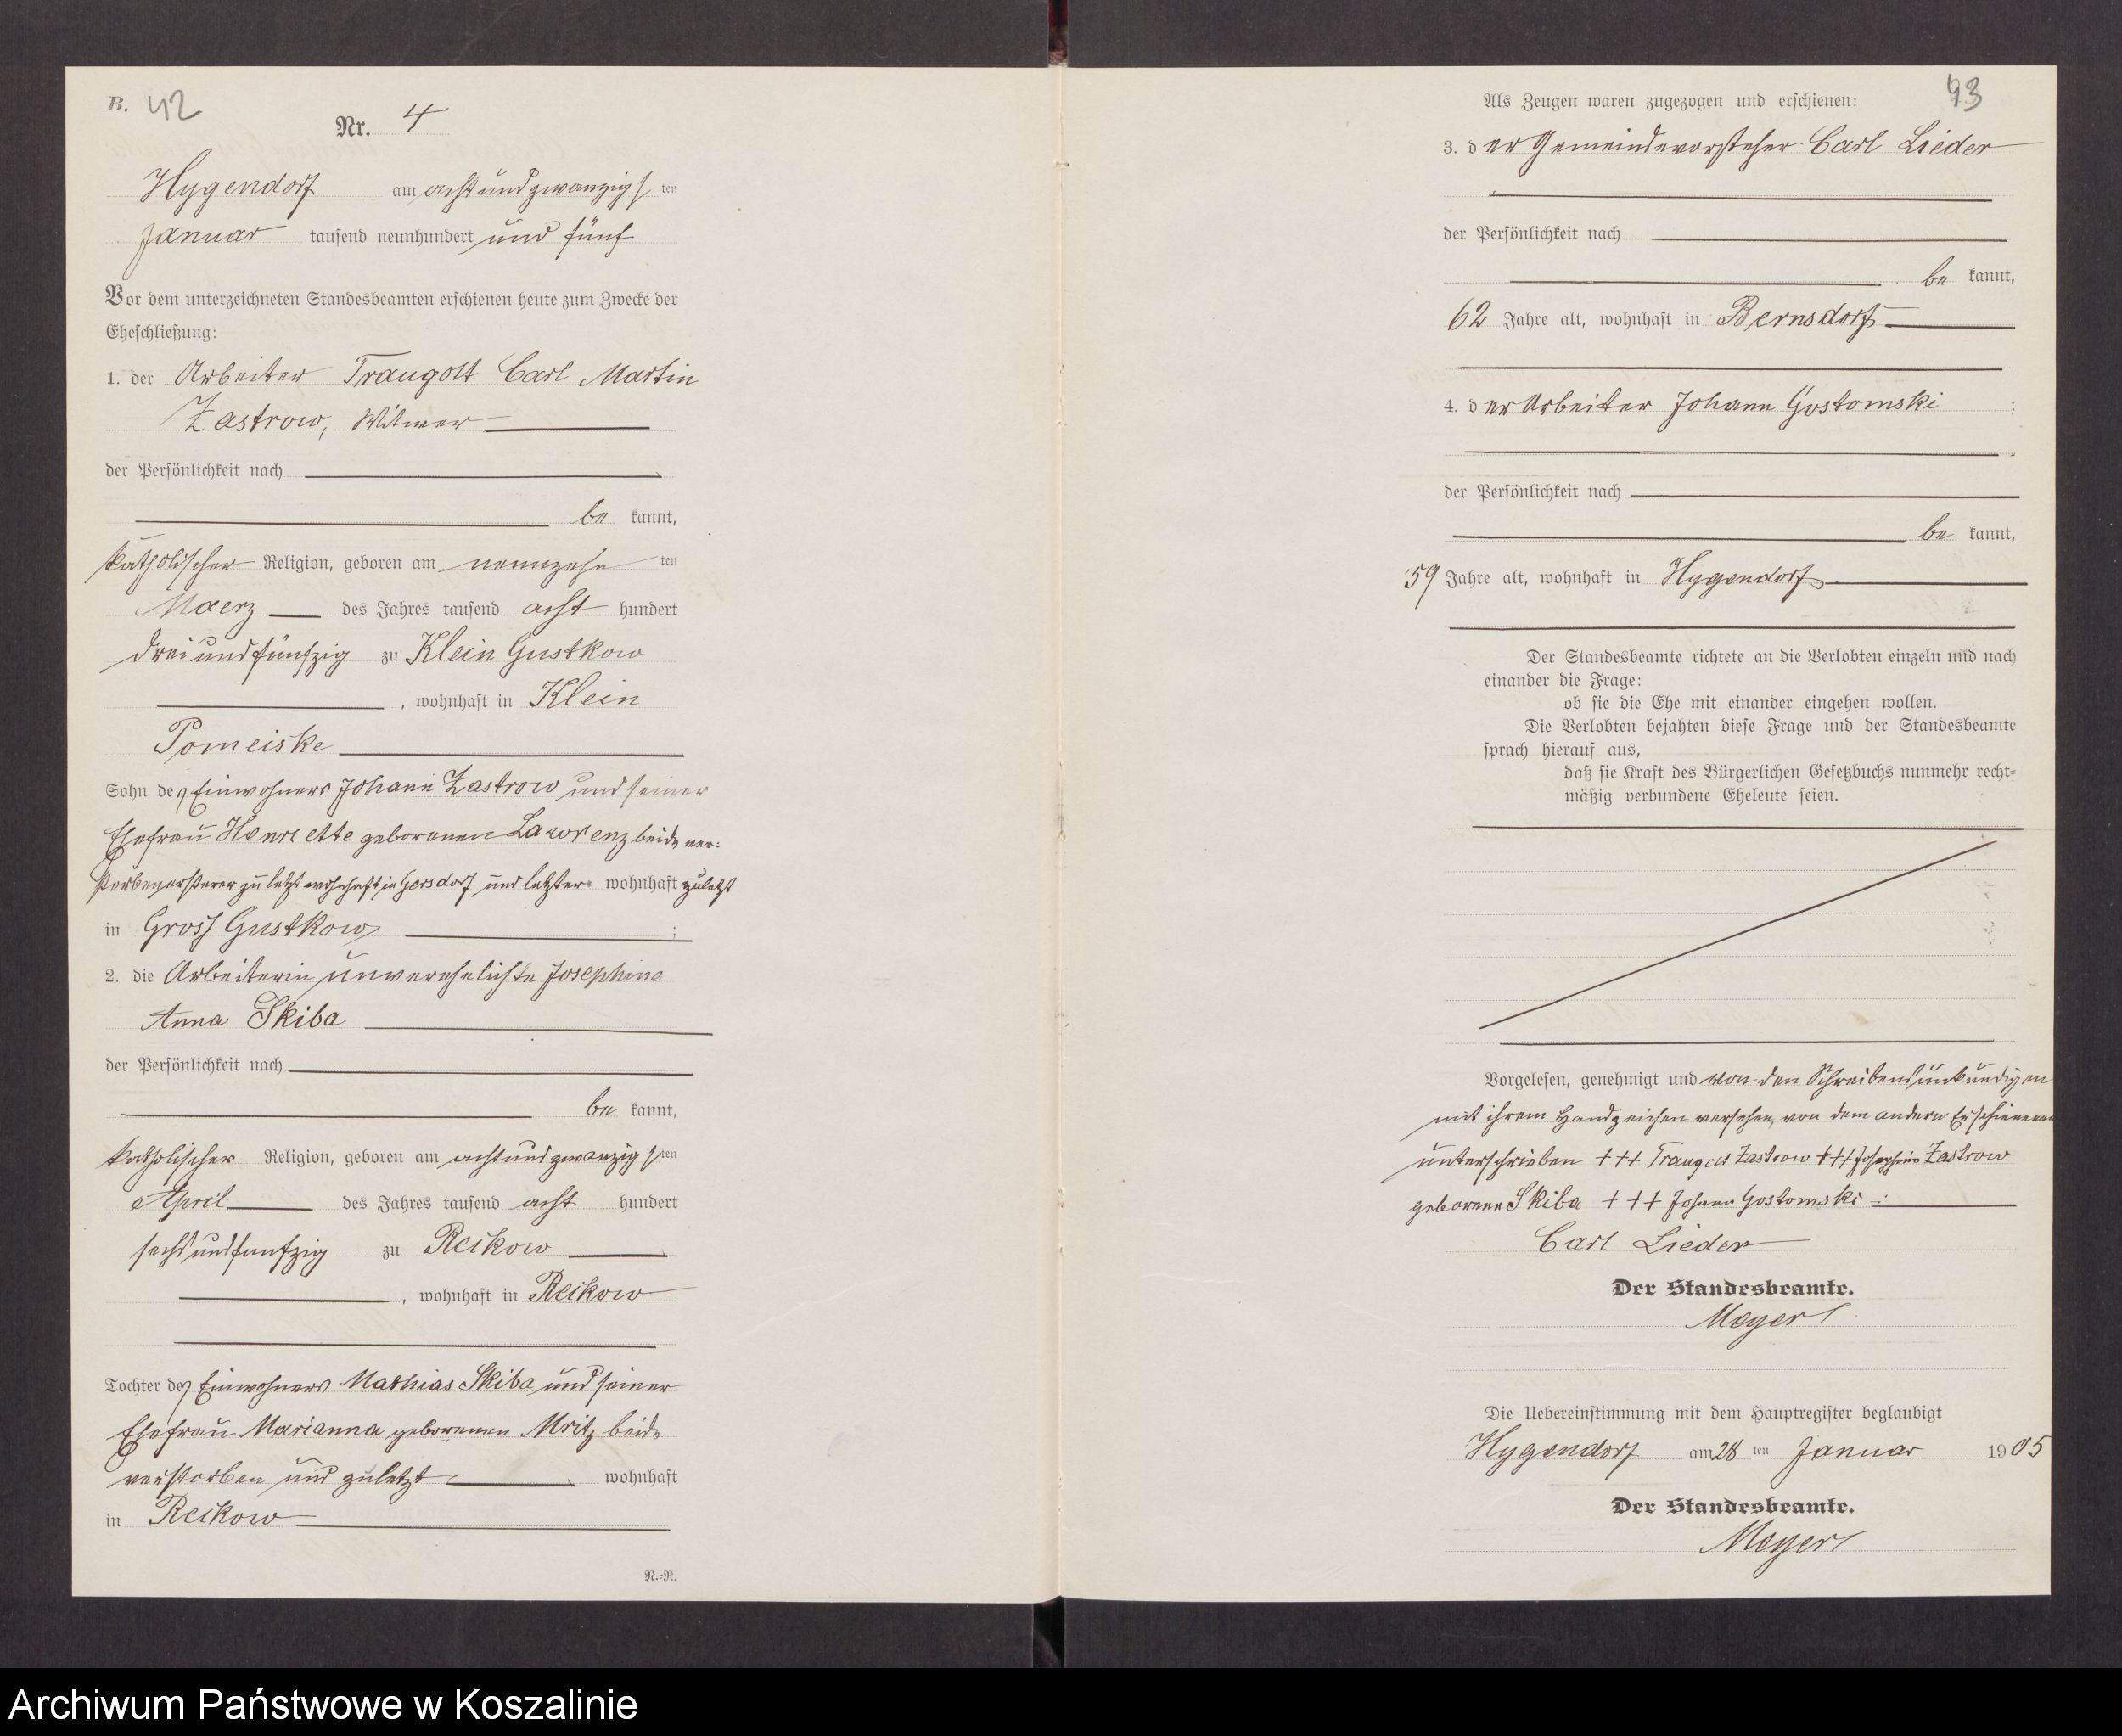 B. 42
Nr. 4
Hygendorf am achtundzwanzigsten
Januar tausend neunhundert und fünf
Vor dem unterzeichneten Standesbeamten erschienen heute zum Zwecke der
Eheschließung:
1. der Arbeiter Traugott Carl Martin
Zastrow, Witwer
der Persönlichkeit nach
be kannt,
katholischer Religion, geboren am neunzehn ten
Maerz des Jahres tausend acht hundert
dreiundfünfzig zu Klein Gustkow
, wohnhaft in Klein
Pomeiske
Sohn des Einwohners Johann Zastrow und seiner
Ehefrau Henriette geborenen Lawrenz beide ver-
storben ersterer zuletzt wohnhaft in Gersdorf und letztere wohnhaft zuletzt
in Gross Gustkow ;
2. die Arbeiterin unverehelichte Josephine
Anna Skiba
der Persönlichkeit nach
be kannt,
katholischer Religion, geboren am achtundzwanzigsten
April des Jahres tausend acht hundert
sechsundfunfzig zu Reikow
, wohnhaft in Reikow
Tochter des Einwohners Mathias Skiba und seiner
Ehefrau Marianna geborenen Mritz beide
verstorben und zuletzt wohnhaft
in Reikow
N.-N.
Als Zeugen waren zugezogen und erschienen: 43
3. der Gemeindevorsteher Carl Lieder
der Persönlichkeit nach
be kannt,
62 Jahre alt, wohnhaft in Bernsdorf
4. der Arbeiter Johann Gostomski ;
der Persönlichkeit nach
be kannt,
59 Jahre alt, wohnhaft in Hygendorf
Der Standesbeamte richtete an die Verlobten einzeln und nach
einander die Frage:
ob sie die Ehe mit einander eingehen wollen.
Die Verlobten bejahten diese Frage und der Standesbeamte
sprach hierauf aus,
daß sie Kraft des Bürgerlichen Gesetzbuchs nunmehr recht-
mäßig verbundene Eheleute seien.
Vorgelesen, genehmigt und von den Schreibensunkundigen
mit ihrem Handzeichen versehen, von dem andern Erschienenen
unterschrieben +++ Traugott Zastrow +++ Josephine Zastrow
geborene Skiba +++ Johann Gostomski
Carl Lieder
Der Standesbeamte.
Meyer
Die Uebereinstimmung mit dem Hauptregister beglaubigt
Hygendorf am 28 ten Januar 1905
Der Standesbeamte.
Meyer
Archiwum Państwowe w Koszalinie